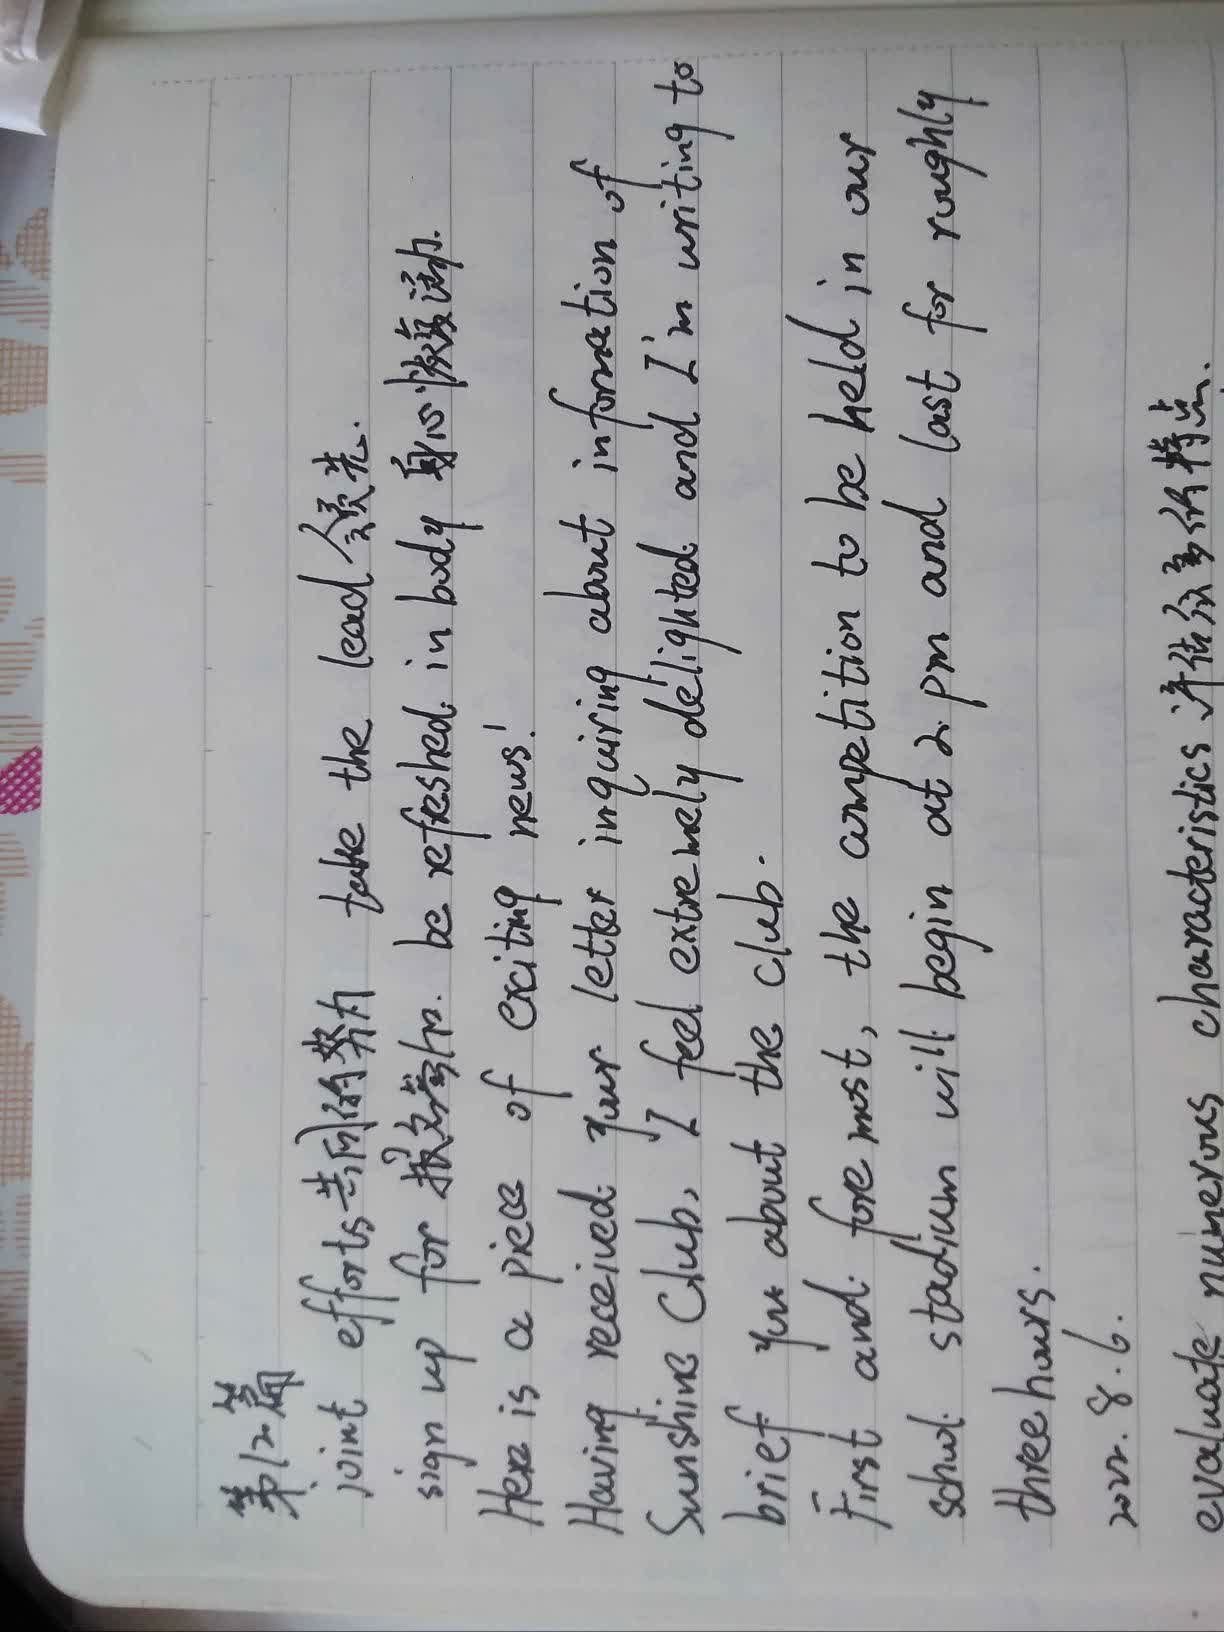 第12篇
joint efforts 共同的努力 take the lead 领先.
sign up for 报名参加. be refreshed in body 身心恢复活力.
Here is a piece of exciting news!
Having received your letter inquiring about information of
Sunshine Club, I feel extremely delighted and I'm writing to
brief you about the club.
First and foremost, the competition to be held in our
school stadium will begin at 2 pm and last for roughly
three hours.
2022.8.6.
evaluate numerous characteristics 评估众多的特点.